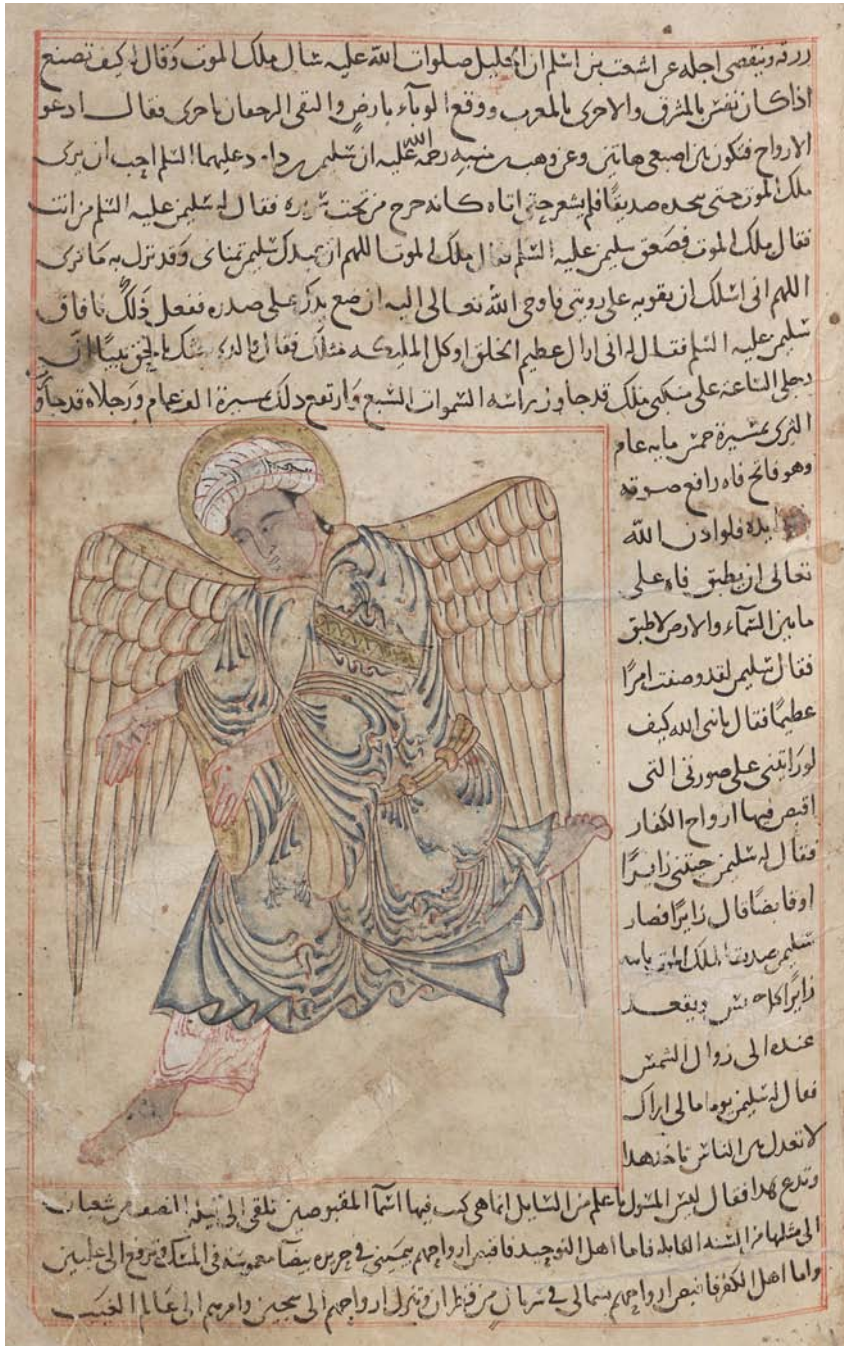 ررقه وينقضى اجله عن اشعث بن اسلم ان ابراهيم صلوات الله عليه سال ملك الموت وقال كيف تصنع
اذا كان نفس بالمشرق والاخرى بالمغرب ووقع الوباء بارض والتقى الزحفان باخرى فقال ادعو
الارواح فتكون بين اصبعى هاتين وعن وهب بن منبه رحمة الله عليه ان سليمن بن داود عليهما السلم احب ان يرى
ملك الموت حتى يتخذه صديقا فلم يشعر حتى اتاه كانه خرج من تحت سريره فقال له سليمن عليه السلم من انت
فقال ملك الموت فصعق سليمن عليه السلم فقال ملك الموت اللهم ان عبدك سليمن تمنانى وقد نزل به ما ترى
اللهم انى اسلك ان يقويه على رويتى فاوحى الله تعالى اليه ان ضع يدك على صدره ففعل ذلك فافاق
سليمن عليه السلم فقال له انى اراك عظيم الخلق اوكل المليكه مثلك فقال والذى بعثك بالحق نبيا ان
رجلى الساعة على منكبى ملك قد جاوز راسه السموات السبع وارتفع ذلك مسيرة الف عام ورجلاه قد جاوز
الثرى بمسيرة خمس مايه عام
وهو فاتح فاه رافع صوته
يده فلو اذن الله
تعالى ان يطبق فاه على
ما بين السماء والارض لاطبق
فقال سليمن لقد وصفت امرا
عظيما فقال يا نبى الله كيف
لو رايتنى على صورتى التى
اقبض فيها ارواح الكفار
فقال له سليمن جيتنى زايرا
او قابضا قال زايرا فصار
سليمن صديقا لملك الموت ياتيه
زايرا كل خميس ويقعد
عنده الى زوال الشمس
فقال له سليمن يوما مالى اراك
لا تعدل بين الناس تاخذ هذا
وتدع هذا فقال ليس المسول باعلم من السايل انما هى كتب فيها اسما المقبوضين تلقى الى ليلة النصف من شعبان
الى مثلها من السنه القابله فاما اهل التوحيد فاقبض ارواحهم بيمينى فى حريره بيضا مغموسه فى المسك وترفع الى عليين
واما اهل الكفر فاقبض ارواحهم بشمالى فى سربال من قطران وتنزل ارواحهم الى سجين وامرهم الى عالم الغيب